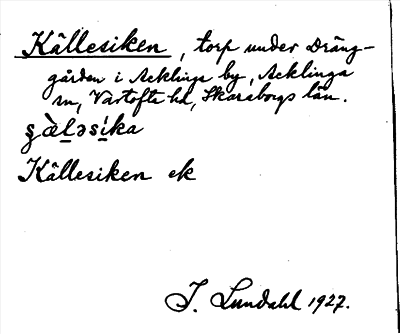 Källesiken, torp under Dräng-
gården i Acklinga by, Acklinga
sn, Vartofta hd, Skaraborgs län.
Källesiken ek
I. Lundahl 1927.